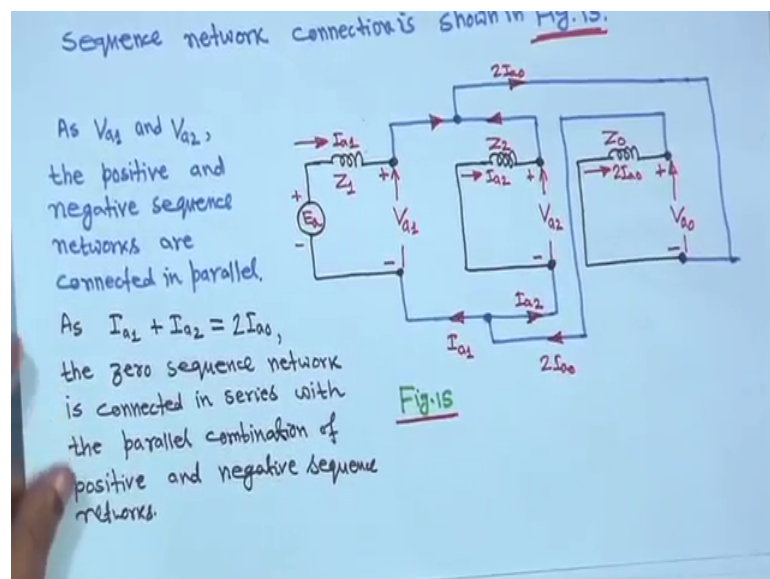 Sequence network connection is shown in Fig. 15.
As Va1 and Va2,
the positive and
negative sequence
networks are
connected in parallel.
As Ia1 + Ia2 = 2Ia0,
the zero sequence network
is connected in series with
the parallel combination of
positive and negative sequence
networks.
2Ia0
Ia1
Z1
+
Ea
+
-
Va1
-
Z2
Ia2
+
Va2
-
Z0
2Ia0
+
Va0
-
Ia2
Ia1
2Ia0
Fig. 15